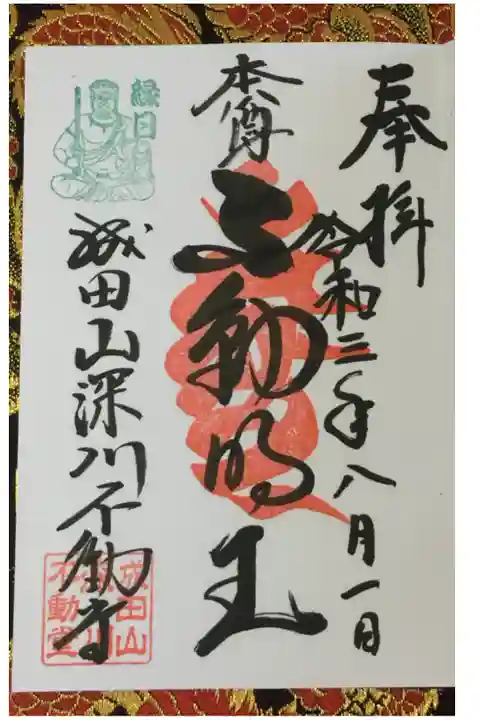 奉拝
令和三年八月一日
本尊
不動明王
縁日
成田山深川不動堂
成田山
深川
不動堂